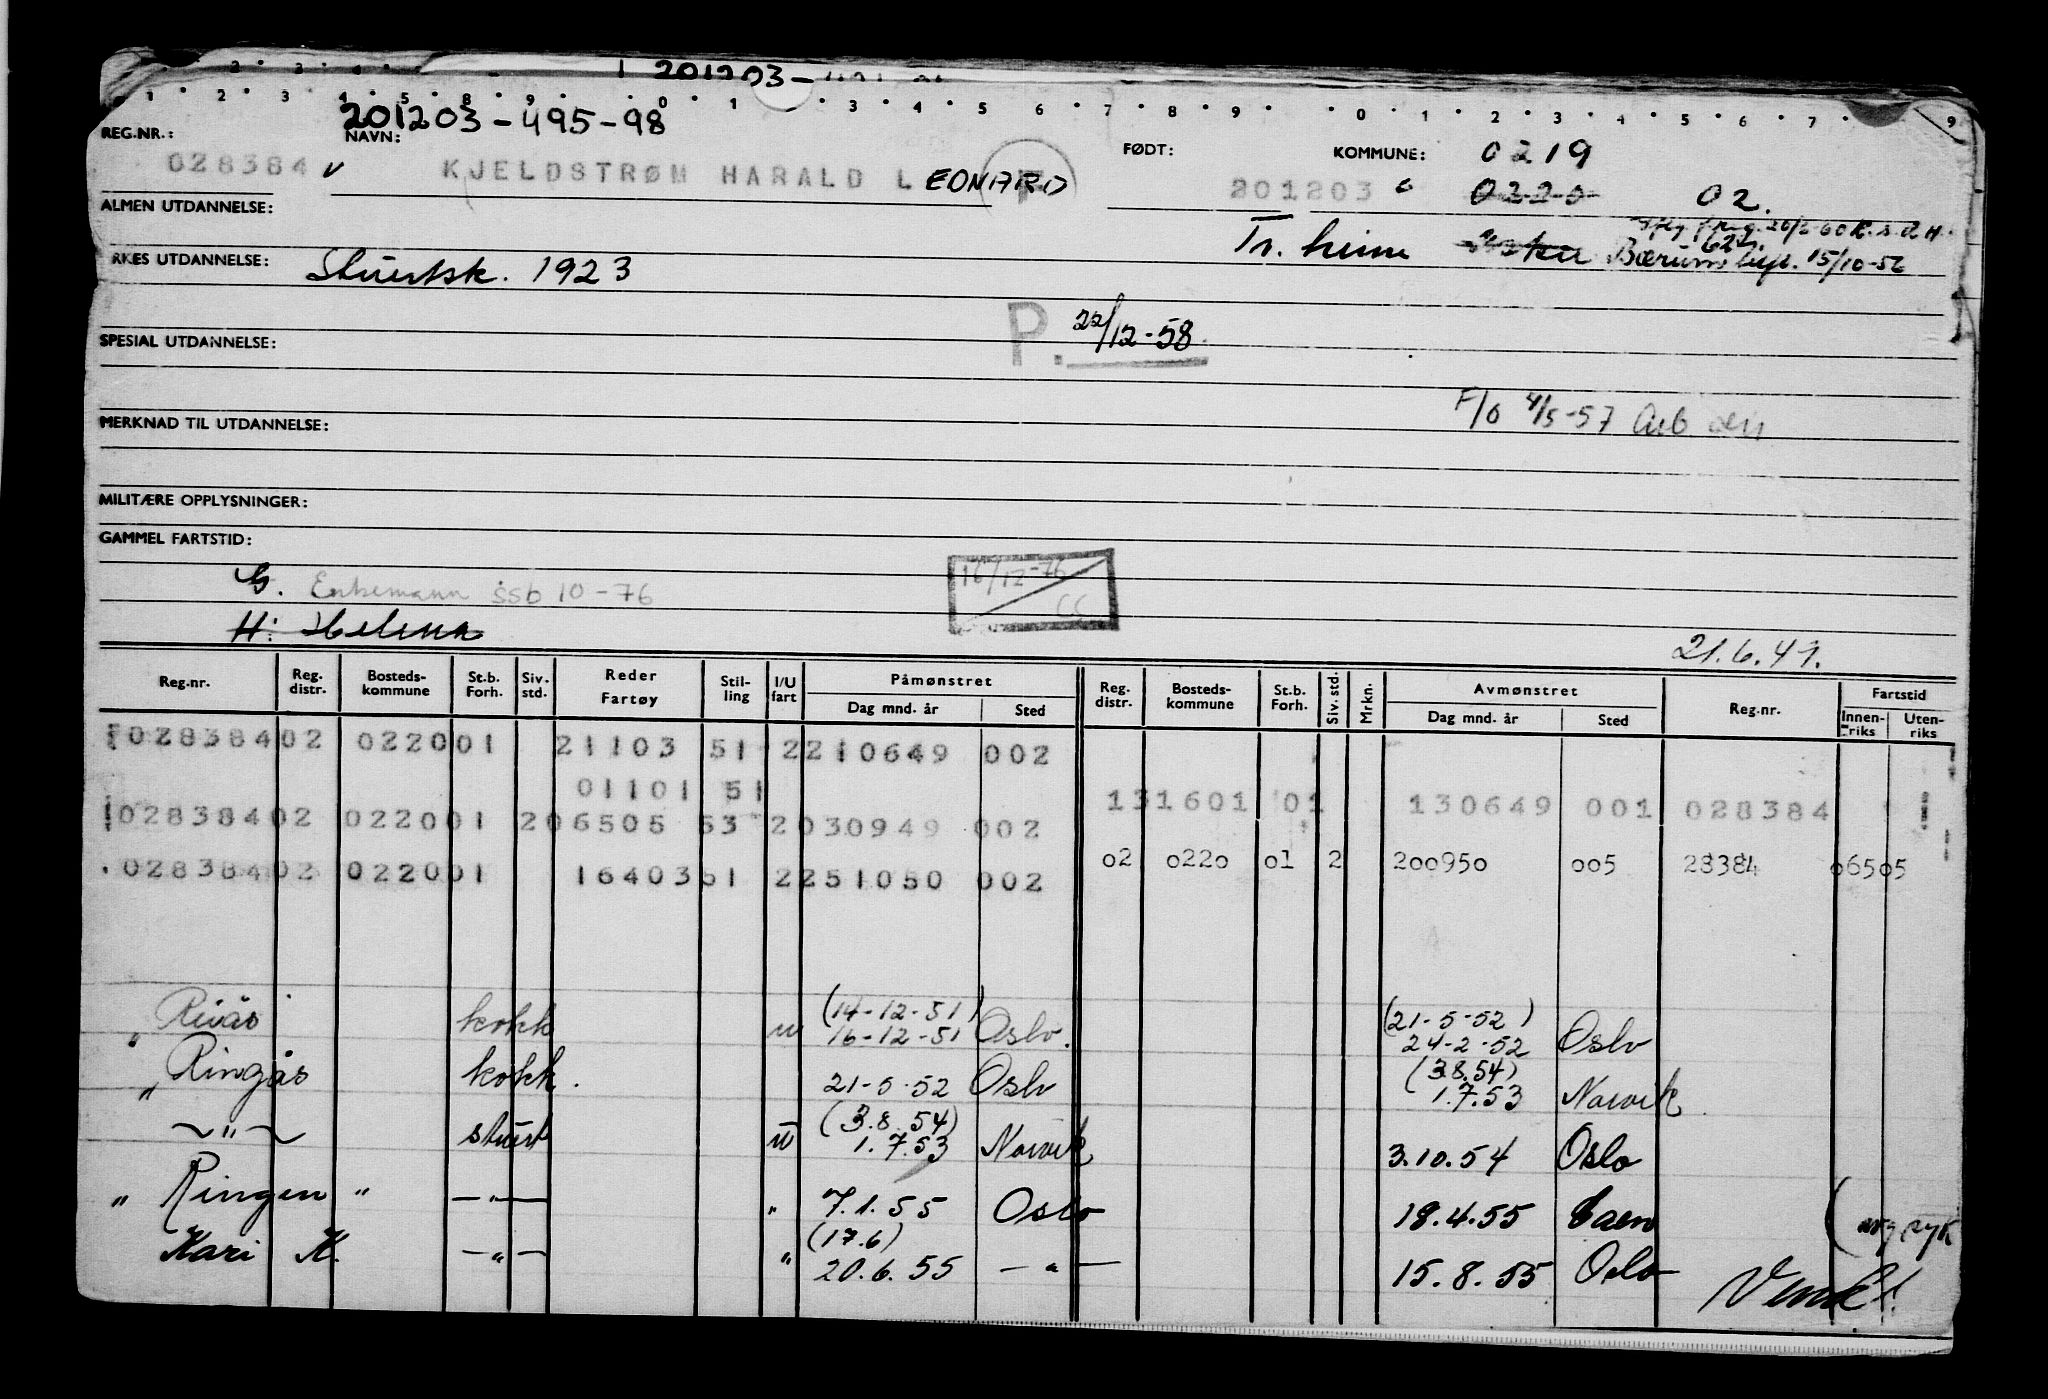 201203-
1 2 3 4 5 8 9 0 1 3 4 5 6 7 8 9 0 1 2 3 4 5 6 7 9
201203-495-98
REG.NR.: NAVN: FØDT: KOMMUNE: 0219
028384 V KJELDSTRØM HARALD LEONARD F 201203 0220 02.
ALMEN UTDANNELSE:
Tr. heim Bærum 15/10-56
RKES UTDANNELSE: Stuertsk. 1923
P. 22/12-58
SPESIAL UTDANNELSE:
F/O 4/5-57
MERKNAD TIL UTDANNELSE:
MILITÆRE OPPLYSNINGER:
GAMMEL FARTSTID:
16/12-76
G. Enkemann ssb 10-76
H: Helena
21.6.49.
Reg.nr. Reg. distr. Bosteds-kommune St.b. Forh. Siv. std. Reder Fartøy Stil-ling I/U fart Påmønstret Dag mnd. år Sted Reg. distr. Bosteds-kommune St.b. Forh. Siv. std. Mrkn. Avmønstret Dag mnd. år Sted Reg.nr. Fartstid Innen-riks Uten-riks
028384 02 0220 01 21103 51 2 210649 002
01101 51 131601 01 130649 001 028384
028384 02 0220 01 2 06505 53 2 030949 002
02 0220 01 2 200950 005 28384 06505
028384 02 0220 01 16403 51 2 251050 002
(14-12-51) (21-5-52)
" Ringås kokk u 16-12-51 Oslo. 24-2-52 Oslo
(3.8.54)
" Ringås kokk. 21-5-52 Oslo 1.7.53 Narvik
(3.8.54)
— " — stuert u 1.7.53 Narvik 3.10.54 Oslo
" Ringen " — " — " 7.1.55 Oslo 18.4.55 Caen
(17.6)
Kari K. — " — " 20.6.55 — " — 15.8.55 Oslo